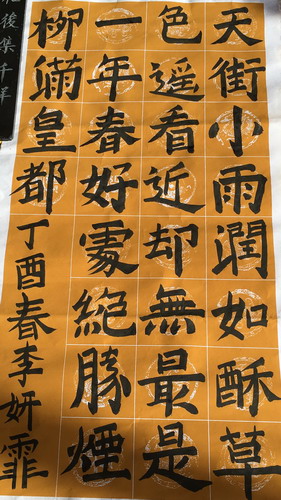 天街小雨潤如酥草
色遥看近却無最是
一年春好處絶勝煙
柳滿皇都
丁酉春李妍霏
後集千